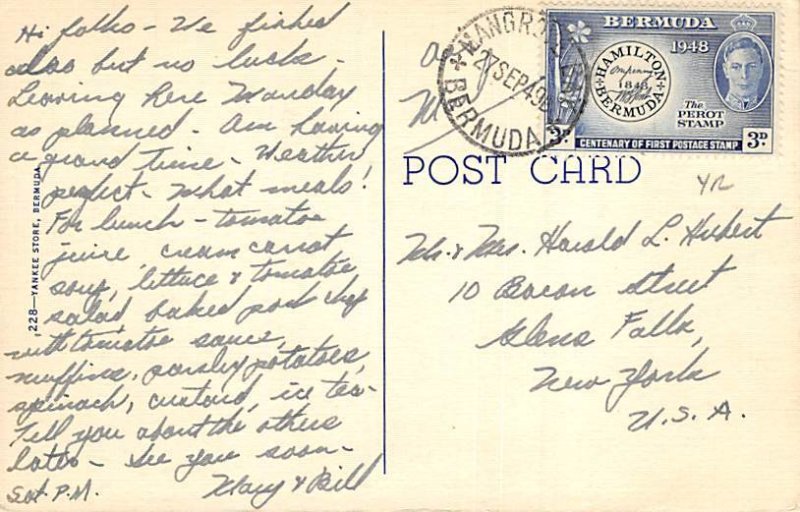 Hi folks - We fished
also but no luck -
Leaving here Monday
as planned - Am having
a grand time - Weather
perfect - What meals!
For lunch - tomatoe
juice, cream carrot
soup, lettuce & tomatoe
salad, baked pork chop
with tomatoe sauce,
muffins, parsley potatoes,
spinach, custard, ice tea -
Tell you about the others
later - See you soon -
Sat P.M. Mary & Bill
228—YANKEE STORE, BERMUDA
MANGR
27 SEP 49
BERMUDA
BERMUDA
1948
HAMILTON
1848
BERMUDA
The
PEROT
STAMP
3D 3D
CENTENARY OF FIRST POSTAGE STAMP
POST CARD
YR
Mr. & Mrs. Harold L. Hubert
10 Bacon Street
Glens Falls,
New York
U.S.A.